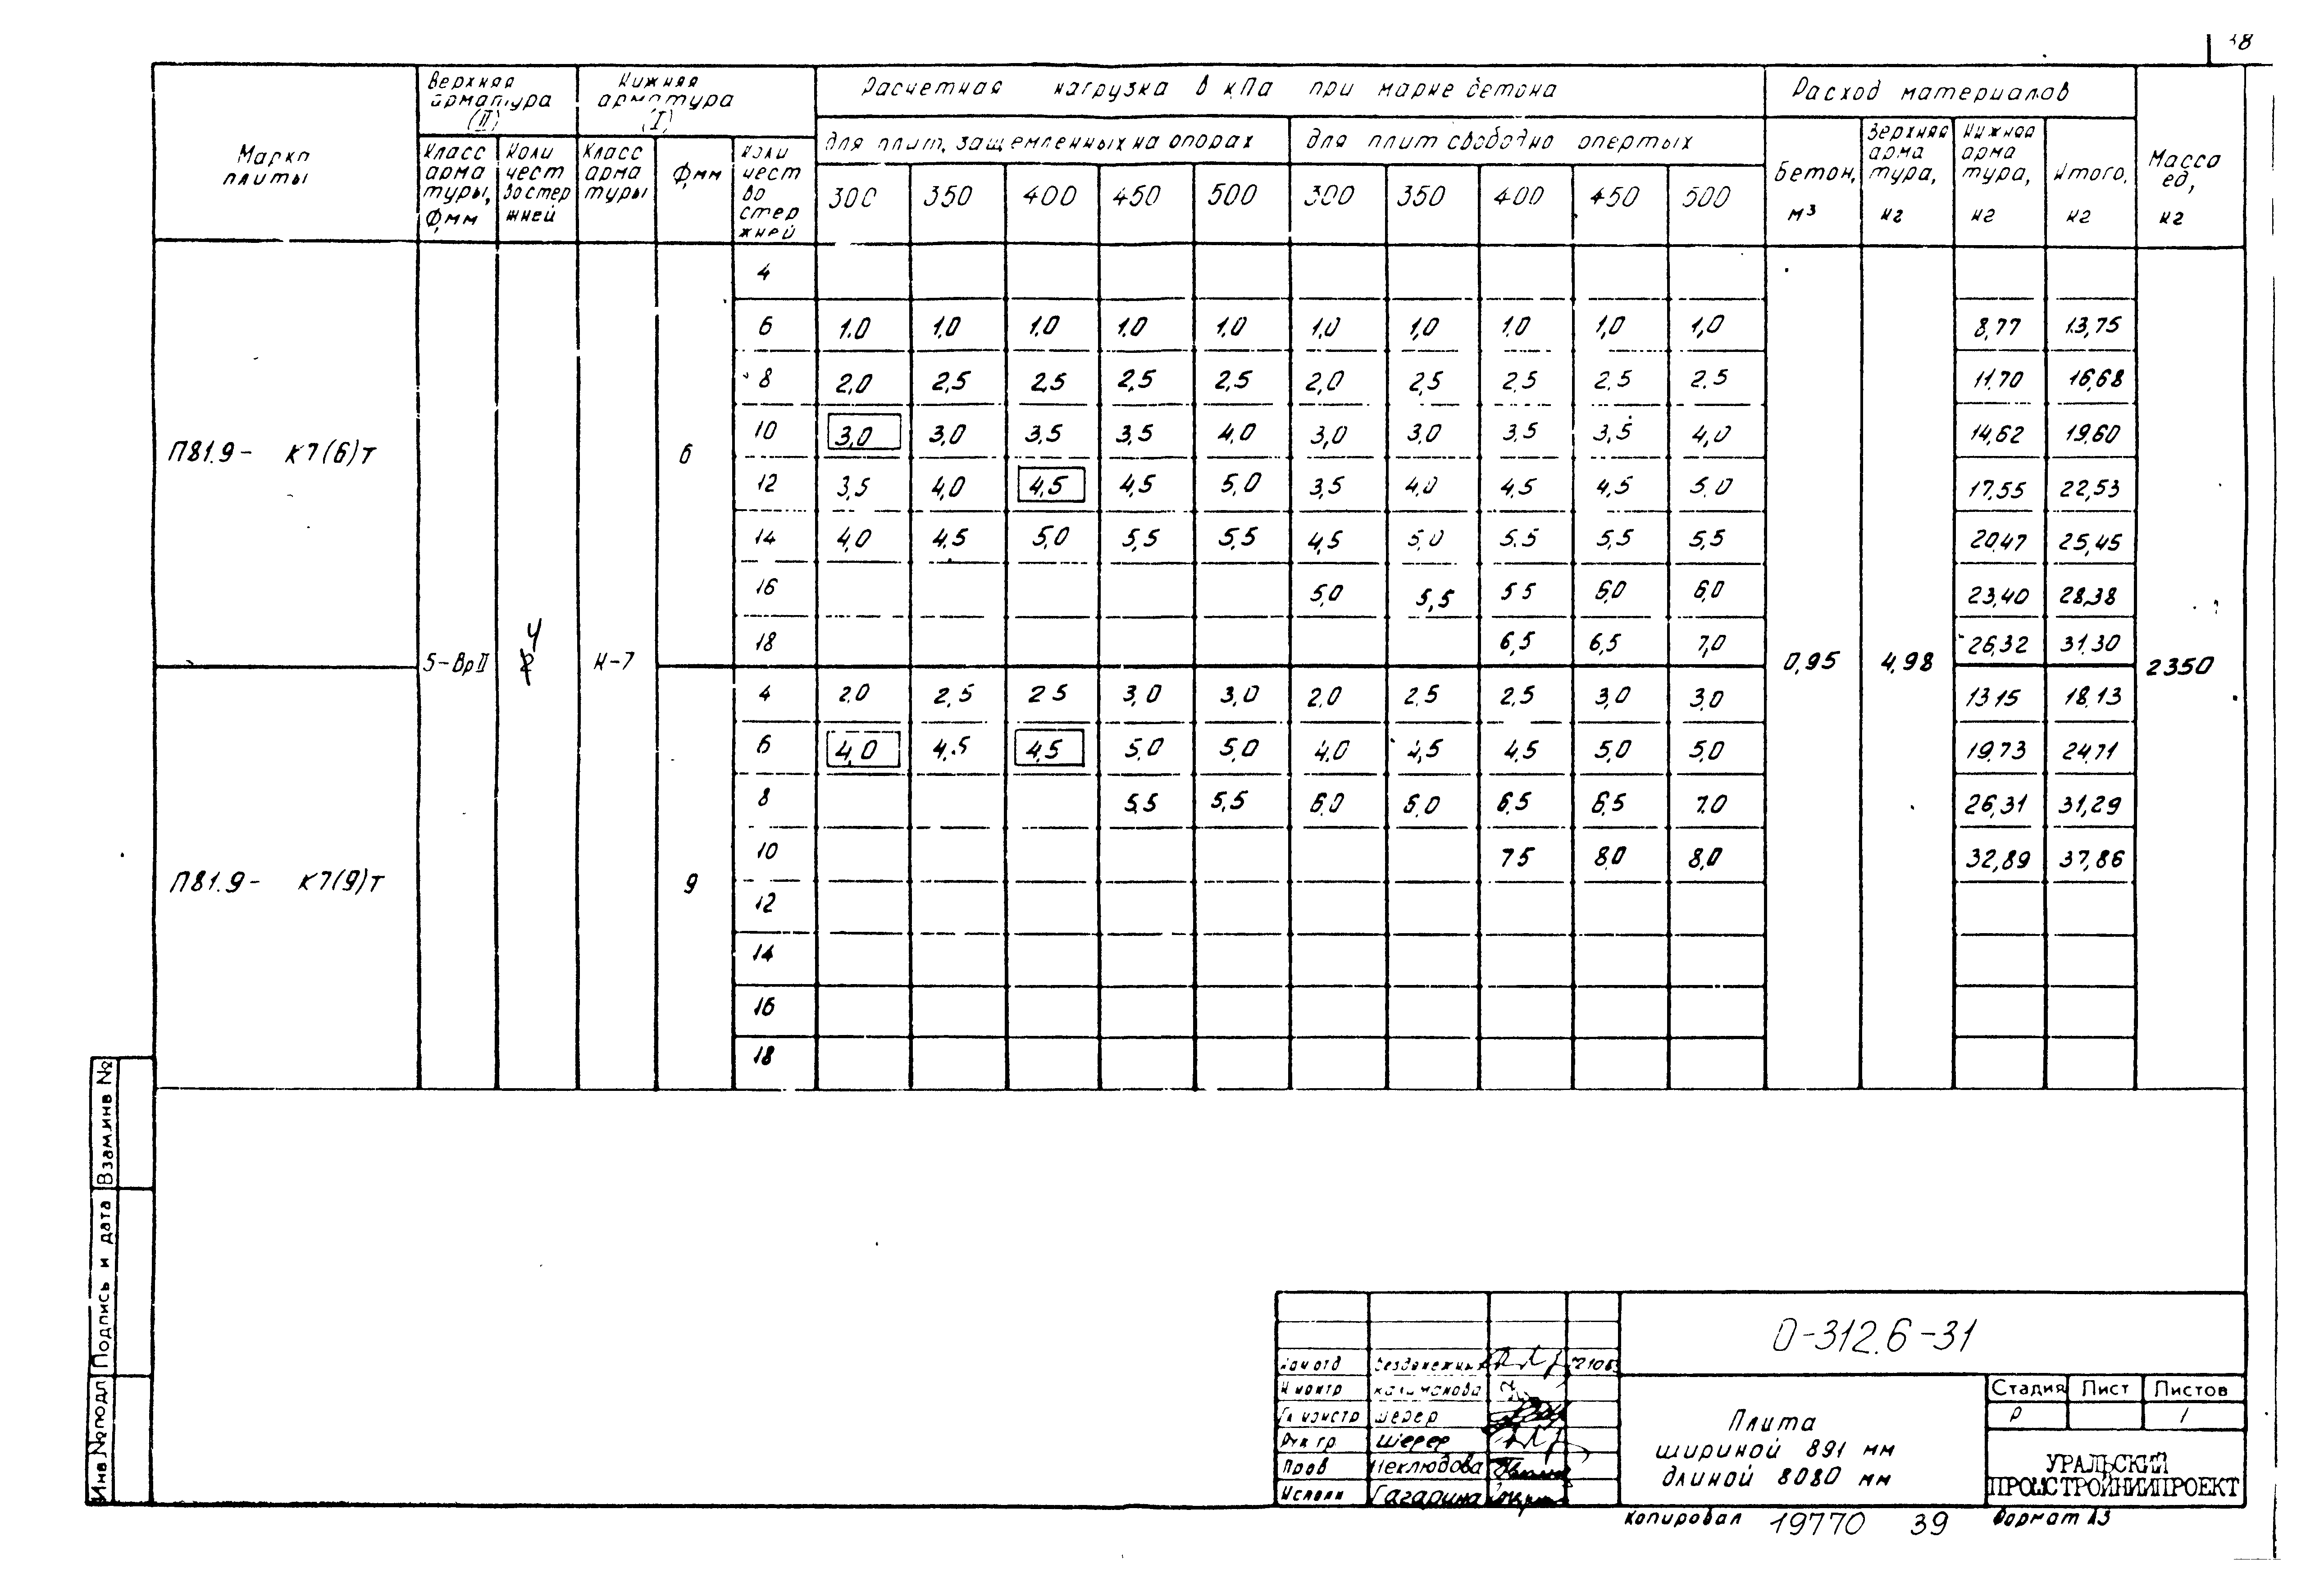 38
Марка плиты
Верхняя арматура (II)
Нижняя арматура (I)
Расчетная нагрузка в кПа при марке бетона
Расход материалов
Масса ед, кг
Класс арматуры, Ф,мм
Количество стержней
Класс арматуры
Ф,мм
Количество стержней
для плит, защемленных на опорах
для плит свободно опертых
Бетон, м³
Верхняя арматура, кг
Нижняя арматура, кг
Итого, кг
300 350 400 450 500 300 350 400 450 500
4
6 1.0 1,0 1,0 1.0 1,0 1,0 1,0 1.0 1,0 1,0 8,77 13,75
8 2,0 2,5 2,5 2,5 2,5 2,0 2,5 2.5 2.5 2.5 11,70 16,68
10 3,0 3,0 3,5 3,5 4,0 3,0 3,0 3,5 3,5 4,0 14,62 19,60
П81.9- К7(6)Т 6
12 3,5 4,0 4,5 4,5 5,0 3,5 4,0 4,5 4,5 5.0 17,55 22,53
14 4,0 4,5 5,0 5,5 5,5 4,5 5,0 5.5 5,5 5,5 20,47 25,45
16 5,0 5,5 5 5 6,0 6,0 23,40 28,38
18 6,5 6,5 7,0 26,32 31.30
5-ВрII 4 К-7 0,95 4,98 2350
4 2.0 2,5 2 5 3,0 3,0 2.0 2.5 2,5 3,0 3,0 13 15 18,13
6 4,0 4,5 4,5 5,0 5,0 4,0 4,5 4,5 5,0 5,0 19,73 24,71
8 5,5 5,5 6,0 6,0 6,5 6,5 7.0 26,31 31,29
10 7 5 8,0 8,0 32,89 37,86
П81.9- К7(9)Т 9
12
14
16
18
Взам.инв №
Подпись и дата
Инв № подл
О-312.6-31
Н контр
Гл констр Шерер
Рук гр Шерер
Пров Неклюдова
Исполн Гагарина
Плита
шириной 891 мм
длиной 8080 мм
Стадия Лист Листов
Р 1
УРАЛЬСКИЙ
ПРОМСТРОЙНИИПРОЕКТ
Копировал 19770 39 Формат А3